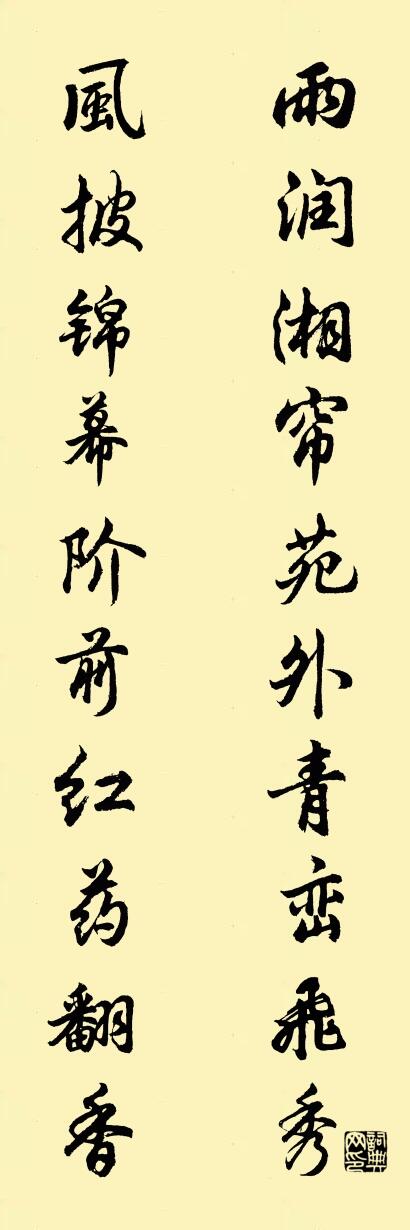 雨润湘帘苑外青峦飛秀
風披锦幕阶前红药翻香
詞典网印